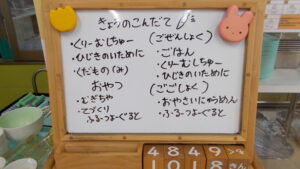 きょうのこんだて
・くりーむしちゅー
・ひじきのいために
・くだもの(み)
おやつ
・むぎちゃ
・てづくり
ふるーつよーぐると
(ごぜんしょく)
・ごはん
・くりーむしちゅー
・ひじきのいために
(ごごしょく)
・おやさいにゅうめん
・ふるーつよーぐると
4849
1018